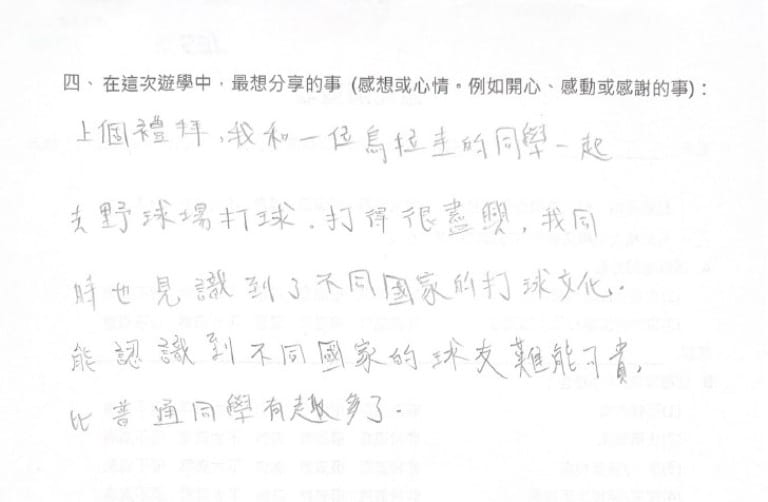 四、在這次遊學中，最想分享的事 (感想或心情。例如開心、感動或感謝的事)：
上個禮拜，我和一位烏拉圭的同學一起
去野球場打球．打得很盡興，我同
時也見識到了不同國家的打球文化．
能認識到不同國家的球友難能可貴，
比普通同學有趣多了．